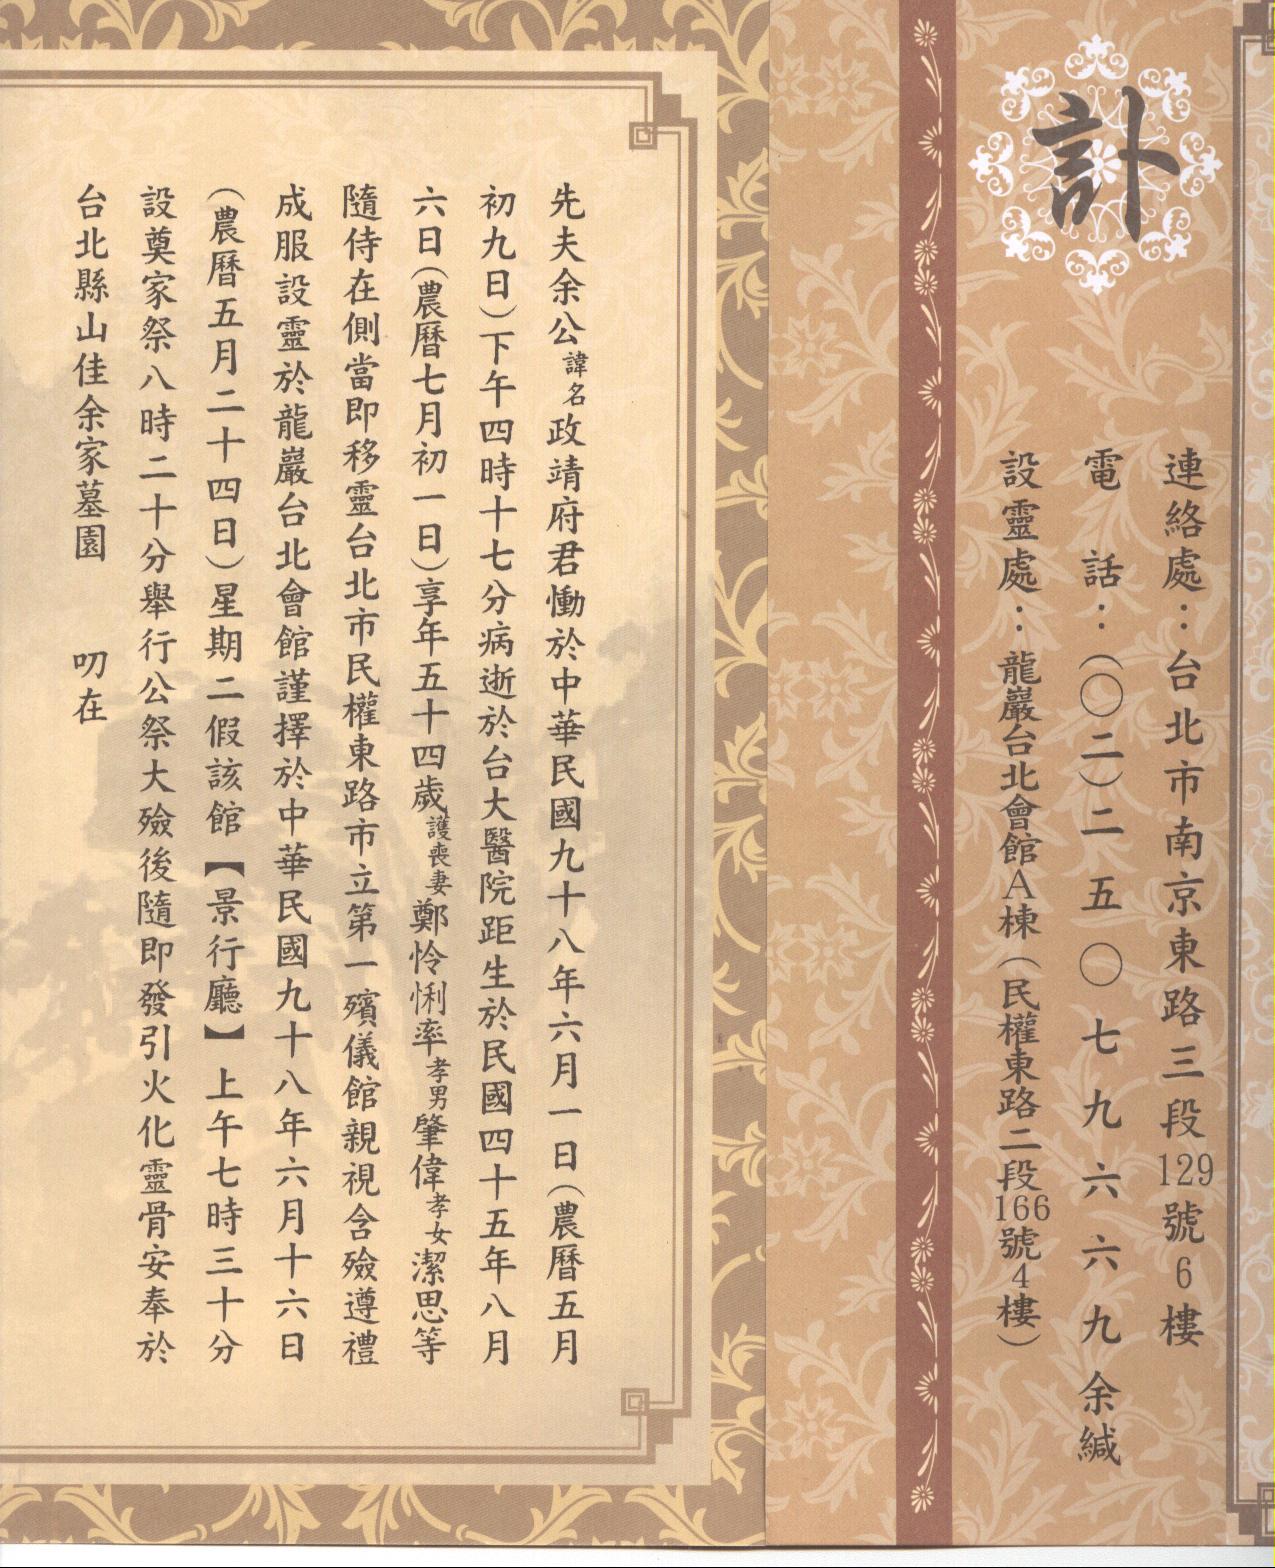 訃
連絡處：台北市南京東路三段129號6樓
電話：（〇二）二五〇七九六六九 余緘
設靈處：龍巖台北會館A棟（民權東路二段166號4樓）
先夫余公諱名政靖府君慟於中華民國九十八年六月一日（農曆五月
初九日）下午四時十七分病逝於台大醫院距生於民國四十五年八月
六日（農曆七月初一日）享年五十四歲護喪妻鄭怜悧率孝男肇偉孝女潔思等
隨侍在側當即移靈台北市民權東路市立第一殯儀館親視含殮遵禮
成服設靈於龍巖台北會館謹擇於中華民國九十八年六月十六日
（農曆五月二十四日）星期二假該館【景行廳】上午七時三十分
設奠家祭八時二十分舉行公祭大殮後隨即發引火化靈骨安奉於
台北縣山佳余家墓園 叨在